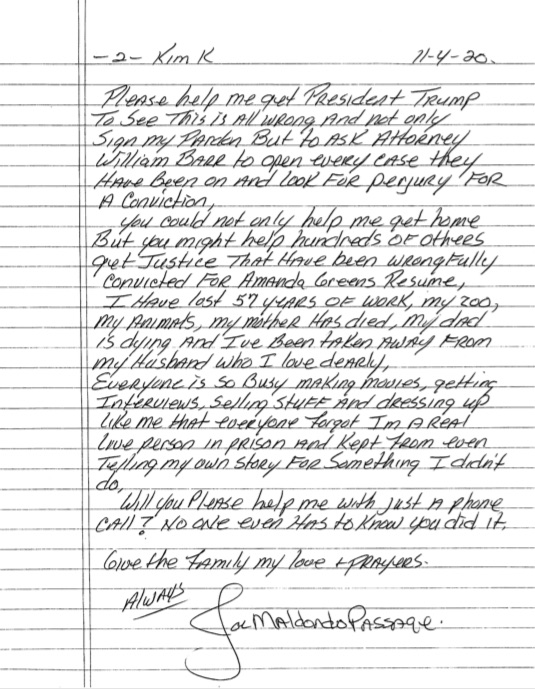 -2- Kim K 11-4-20.
Please help me get President Trump
To See This is All wrong And not only
Sign my Pardon But to Ask Attorney
William Barr to open every case they
Have Been on And look For perjury For
A Conviction,
you could not only help me get home
But you might help hundreds of others
get Justice That Have been wrongfully
Convicted For Amanda Greens Resume,
I Have lost 57 years of work, my zoo,
my Animals, my mother Has died, my dad
is dying And I've Been taken Away From
my Husband who I love dearly,
Everyone is so Busy making movies, getting
Interviews, Selling Stuff And dressing up
like me that everyone forgot Im A Real
live person in prison And kept from even
Telling my own story For Something I didn't
do,
Will you Please help me with just A phone
call? No one even Has to know you did it.
Give the Family my love + prayers.
Always
Joe Maldondo Passage.